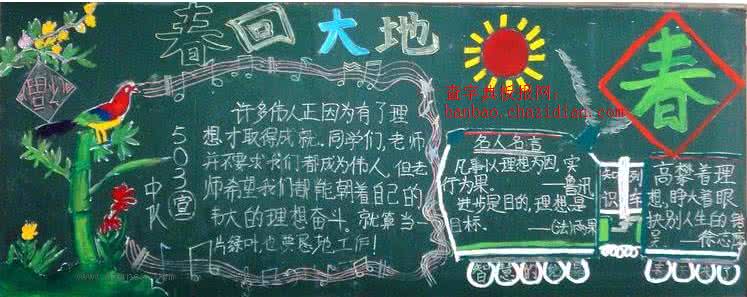 春回大地
春
查字典板报网:
banbao.chazidian.com
503
中队
许多伟人正因为有了理
想才取得成就。同学们,老师
并不要求我们都成为伟人,但老
师希望我们都能朝着自己的
伟大的理想奋斗。就算当一
片绿叶,也要恳地工作!
名人名言
凡事以理想为因,实
行为果。
进步是目的,理想是
目标。
——(法)雨果
知识
列车
高攀着理
想,睁大着眼